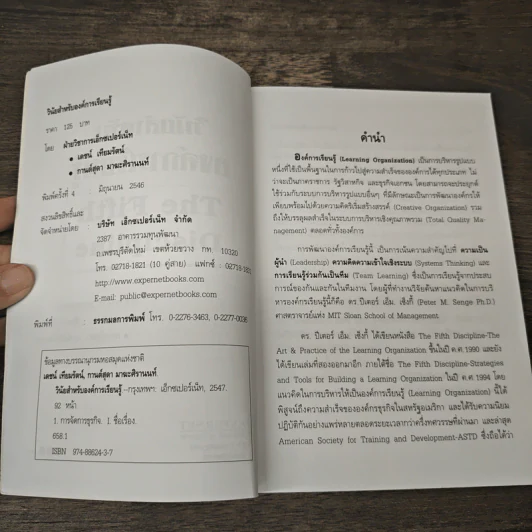 วินัยสำหรับองค์การเรียนรู้
ราคา 125 บาท
โดย ฝ่ายวิชาการเอ็กซเปอร์เน็ท
• เดชน์ เทียมรัตน์
• กานต์สุดา มาฆะศิรานนท์
พิมพ์ครั้งที่ 4 มิถุนายน 2546
สงวนลิขสิทธิ์และ
จัดจำหน่ายโดย : บริษัท เอ็กซเปอร์เน็ท จำกัด
2387 อาคารรวมทุนพัฒนา
ถ.เพชรบุรีตัดใหม่ เขตห้วยขวาง กท. 10320
โทร. 02718-1821 (10 คู่สาย) แฟกซ์ : 02718-
http://www.expernetbooks.com
E-mail: public@expernetbooks.com
พิมพ์ที่ : ธรรกมลการพิมพ์ โทร. 0-2276-3463, 0-2277-0036
ข้อมูลทางบรรณานุกรมหอสมุดแห่งชาติ
เดชน์ เทียมรัตน์, กานต์สุดา มาฆะศิรานนท์
วินัยสำหรับองค์การเรียนรู้.--กรุงเทพฯ: เอ็กซเปอร์เน็ท, 2547.
92 หน้า
1. การจัดการธุรกิจ. I. ชื่อเรื่อง.
658.1
ISBN 974-88624-3-7
คำนำ
องค์การเรียนรู้ (Learning Organization) เป็นการบริหารรูปแบบ
หนึ่งที่ใช้เป็นพื้นฐานในการก้าวไปสู่ความสำเร็จขององค์การได้ทุกประเภท ไม่
ว่าจะเป็นภาคราชการ รัฐวิสาหกิจ และธุรกิจเอกชน โดยสามารถประยุกต์
ใช้ร่วมกับระบบการบริหารรูปแบบอื่นๆ ที่มีลักษณะเป็นการพัฒนาองค์การให้
เพียบพร้อมไปด้วยความคิดริเริ่มสร้างสรรค์ (Creative Organization) รวม
ถึงให้บรรลุผลสำเร็จในระบบการบริหารเชิงคุณภาพรวม (Total Quality Ma-
nagement) ตลอดทั่วทั้งองค์การ
การพัฒนาองค์การเรียนรู้นี้ เป็นการเน้นความสำคัญไปที่ ความเป็น
ผู้นำ (Leadership) ความคิดความเข้าใจเชิงระบบ (Systems Thinking) และ
การเรียนรู้ร่วมกันเป็นทีม (Team Learning) ซึ่งเป็นการเรียนรู้จากประสบ
การณ์ของกันและกันในทีมงาน โดยผู้ที่ทำงานวิจัยค้นหาแนวคิดในการบริ
หารองค์กรเรียนรู้นี้ก็คือ ดร. ปีเตอร์ เอ็ม. เซ็งกี้ (Peter M. Senge Ph.D.)
ศาสตราจารย์แห่ง MIT Sloan School of Management
ดร. ปีเตอร์ เอ็ม. เซ็งกี้ ได้เขียนหนังสือ The Fifth Discipline-The
Art & Practice of the Learning Organization ขึ้นในปี ค.ศ.1990 และยัง
ได้เขียนเล่มที่สองออกมาอีก ภายใต้ชื่อ The Fifth Discipline-Strategies
and Tools for Building a Learning Organization ในปี ค.ศ 1994 โดย
แนวคิดในการบริหารให้เป็นองค์การเรียนรู้ (Learning Organization) นี้ได้
พิสูจน์ถึงความสำเร็จขององค์กรธุรกิจในสหรัฐอเมริกา และได้รับความนิยม
ปฏิบัติกันอย่างแพร่หลายตลอดระยะเวลากว่าครึ่งทศวรรษที่ผ่านมา และล่าสุด
American Society for Training and Development-ASTD ซึ่งถือได้ว่า